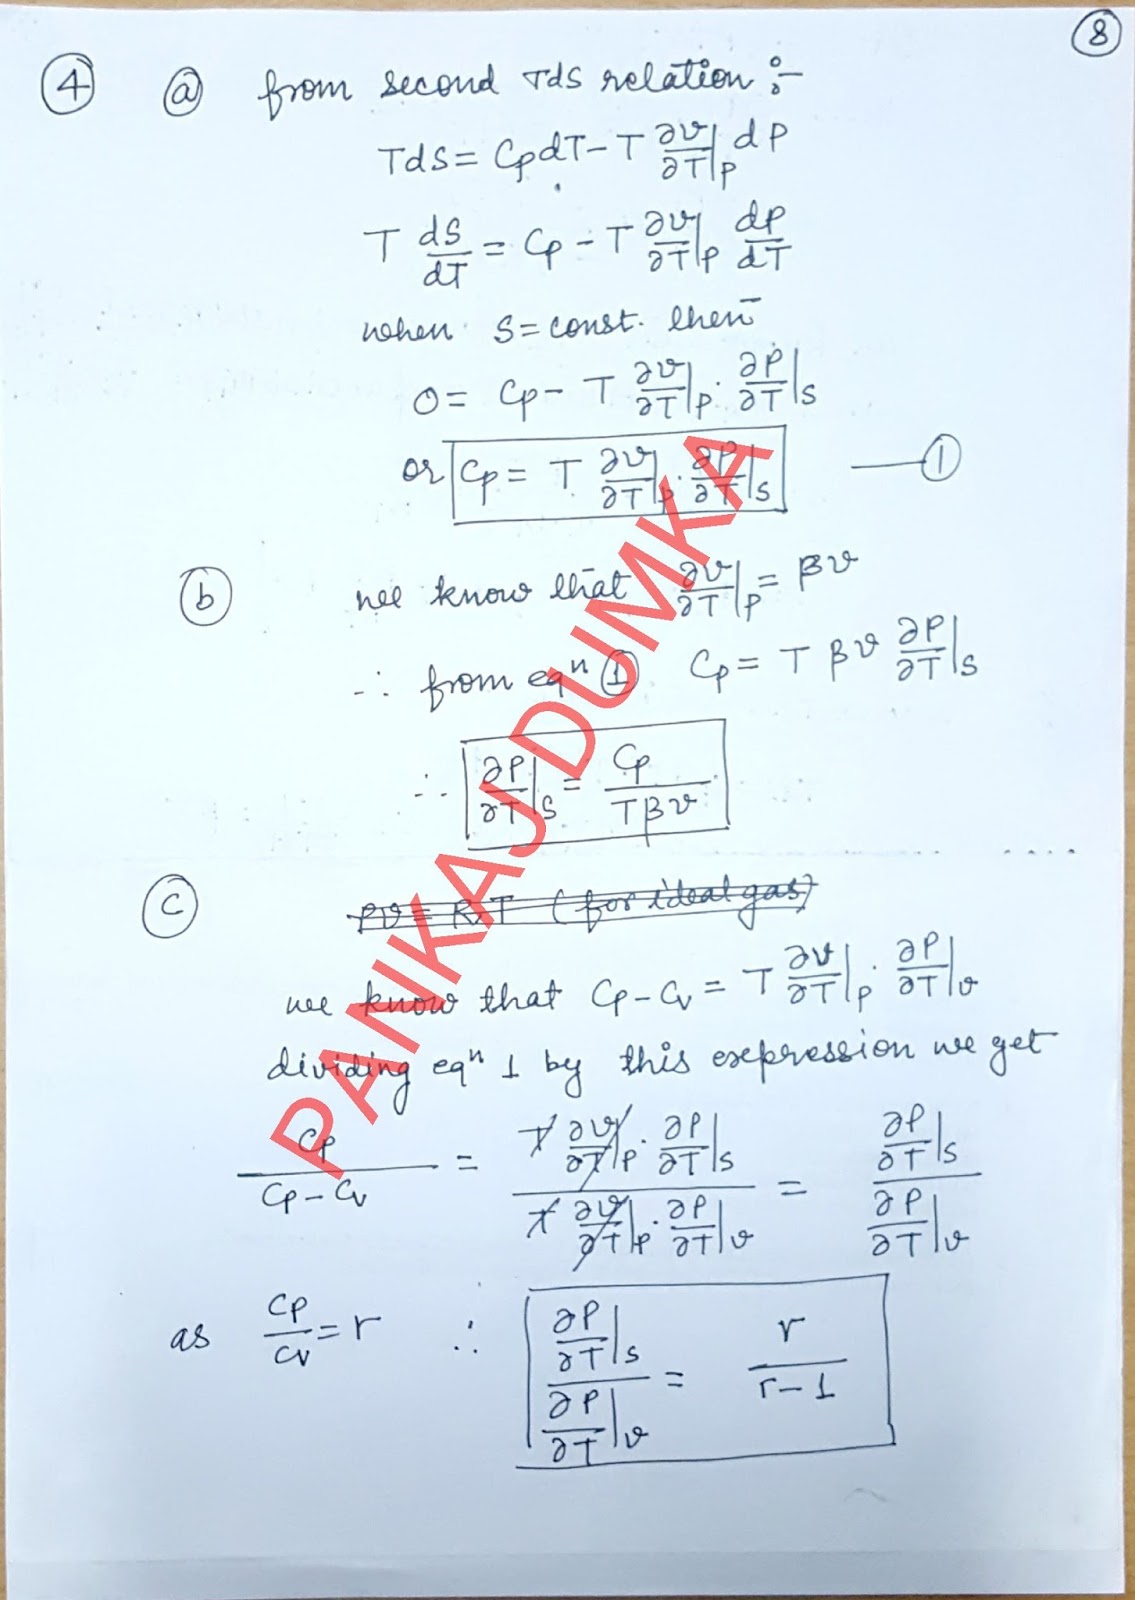 8
4 a from second Tds relation :-
Tds = CpdT - T ∂v/∂T|p dP
T ds/dT = Cp - T ∂v/∂T|p dP/dT
when s = const. then
0 = Cp - T ∂v/∂T|p · ∂P/∂T|s
or Cp = T ∂v/∂T|p · ∂P/∂T|s —— 1
b we know that ∂v/∂T|p = βv
∴ from eqn 1 Cp = T βv ∂P/∂T|s
∴ ∂P/∂T|s = Cp/Tβv
c Pv = RT (for ideal gas)
we know that Cp - Cv = T ∂v/∂T|p · ∂P/∂T|v
dividing eqn 1 by this expression we get
Cp/(Cp - Cv) = (T ∂v/∂T|p · ∂P/∂T|s)/(T ∂v/∂T|p · ∂P/∂T|v) = (∂P/∂T|s)/(∂P/∂T|v)
as Cp/Cv = r ∴ (∂P/∂T|s)/(∂P/∂T|v) = r/(r-1)
PANKAJ DUMKA